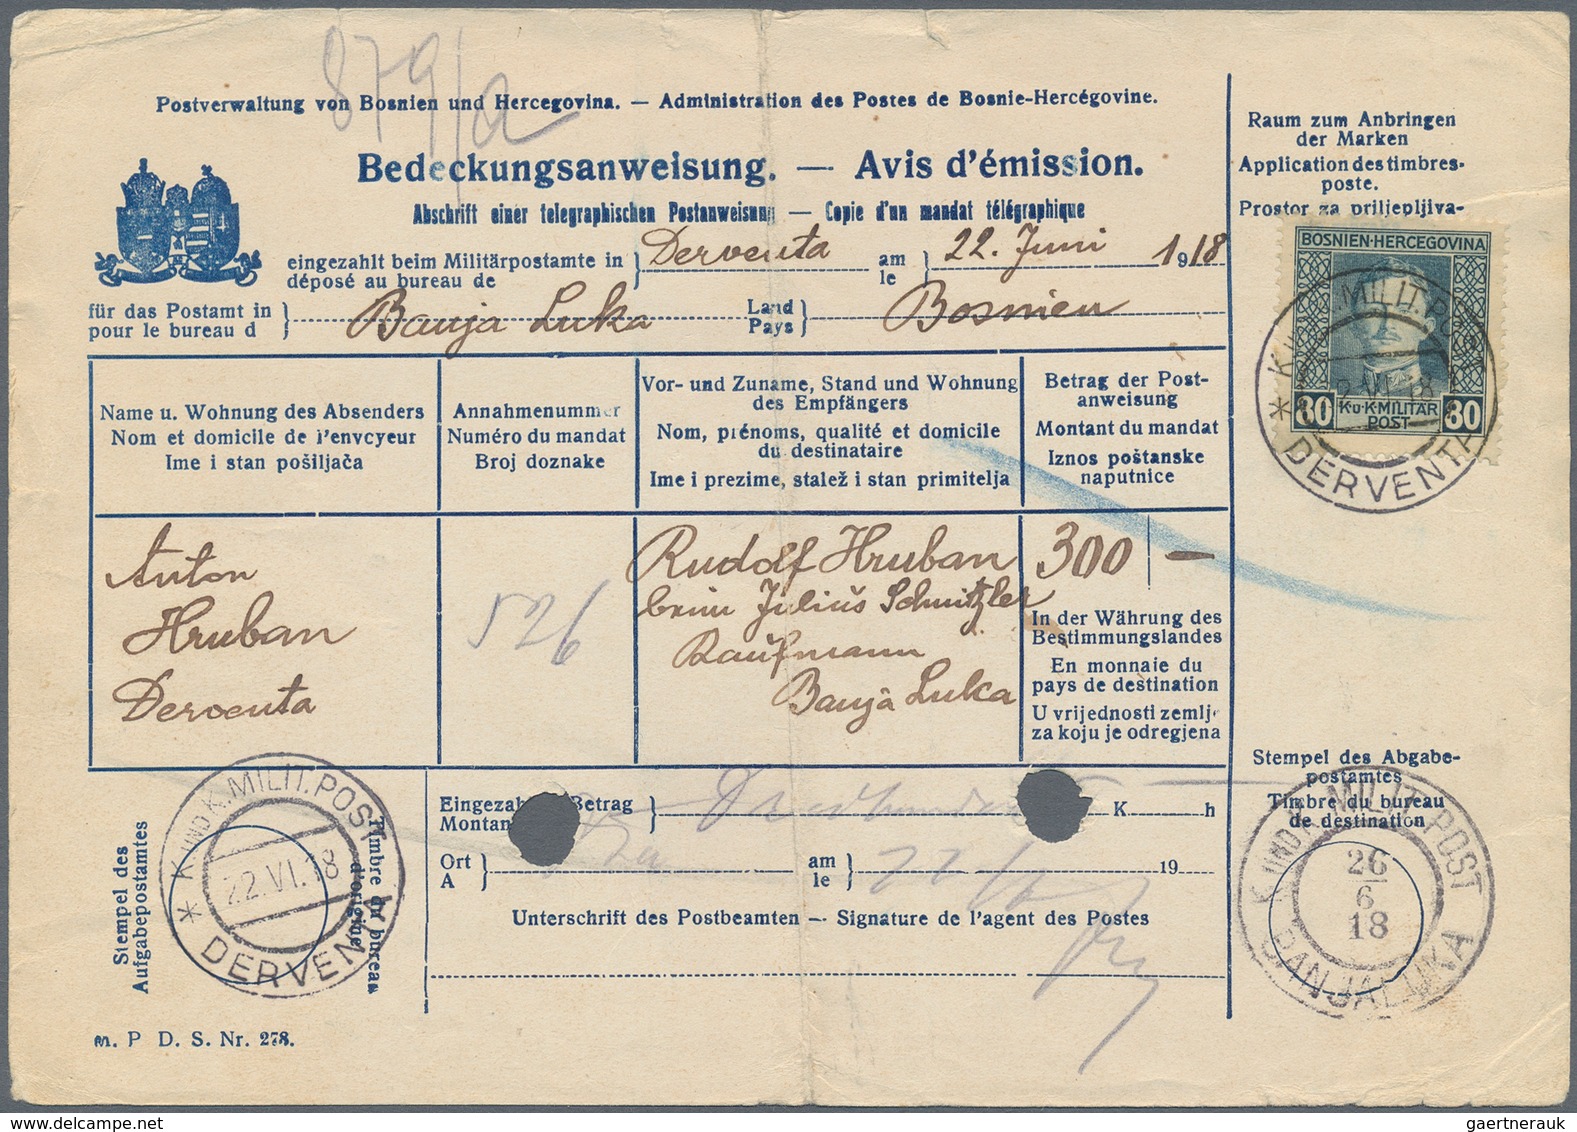 879/a
Postverwaltung von Bosnien und Hercegovina. — Administration des Postes de Bosnie-Hercégovine.
Bedeckungsanweisung. — Avis d'émission.
Abschrift einer telegraphischen Postanweisung — Copie d'un mandat télégraphique
eingezahlt beim Militärpostamte in } Derventa am } 22. Juni 1918
déposé au bureau de le
für das Postamt in } Banja Luka Land } Bosnien
pour le bureau d Pays
Raum zum Anbringen
der Marken
Application des timbres-
poste.
Prostor za priljepljiva-
BOSNIEN-HERCEGOVINA
30 K.u.K. MILITÄR 30
POST
K UND K. MILIT. POST
DERVENTA
Name u. Wohnung des Absenders
Nom et domicile de l'envcyeur
Ime i stan pošiljača
Annahmenummer
Numéro du mandat
Broj doznake
Vor- und Zuname, Stand und Wohnung
des Empfängers
Nom, prénoms, qualité et domicile
du destinataire
Ime i prezime, stalež i stan primitelja
Betrag der Post-
anweisung
Montant du mandat
Iznos poštanske
naputnice
Anton
Hruban
Derventa
526
Rudolf Hruban
beim Julius Schnitzler
Kaufmann
Banja Luka
300 —
In der Währung des
Bestimmungslandes
En monnaie du
pays de destination
U vrijednosti zemlje
za koju je odregjena
Stempel des
Aufgabepostamtes
Timbre du bureau
d'origine
K UND K. MILIT. POST
22.VI.18
* DERVENTA
Eingezah Betrag } K h
Montan
Ort } am } 22/ 19
A le
Unterschrift des Postbeamten — Signature de l'agent des Postes
Stempel des Abgabe-
postamtes
Timbre du bureau
de destination
K UND K. MILIT. POST
26
6
18
BANJALUKA
m. P D. S. Nr. 278.
gaertnerauk